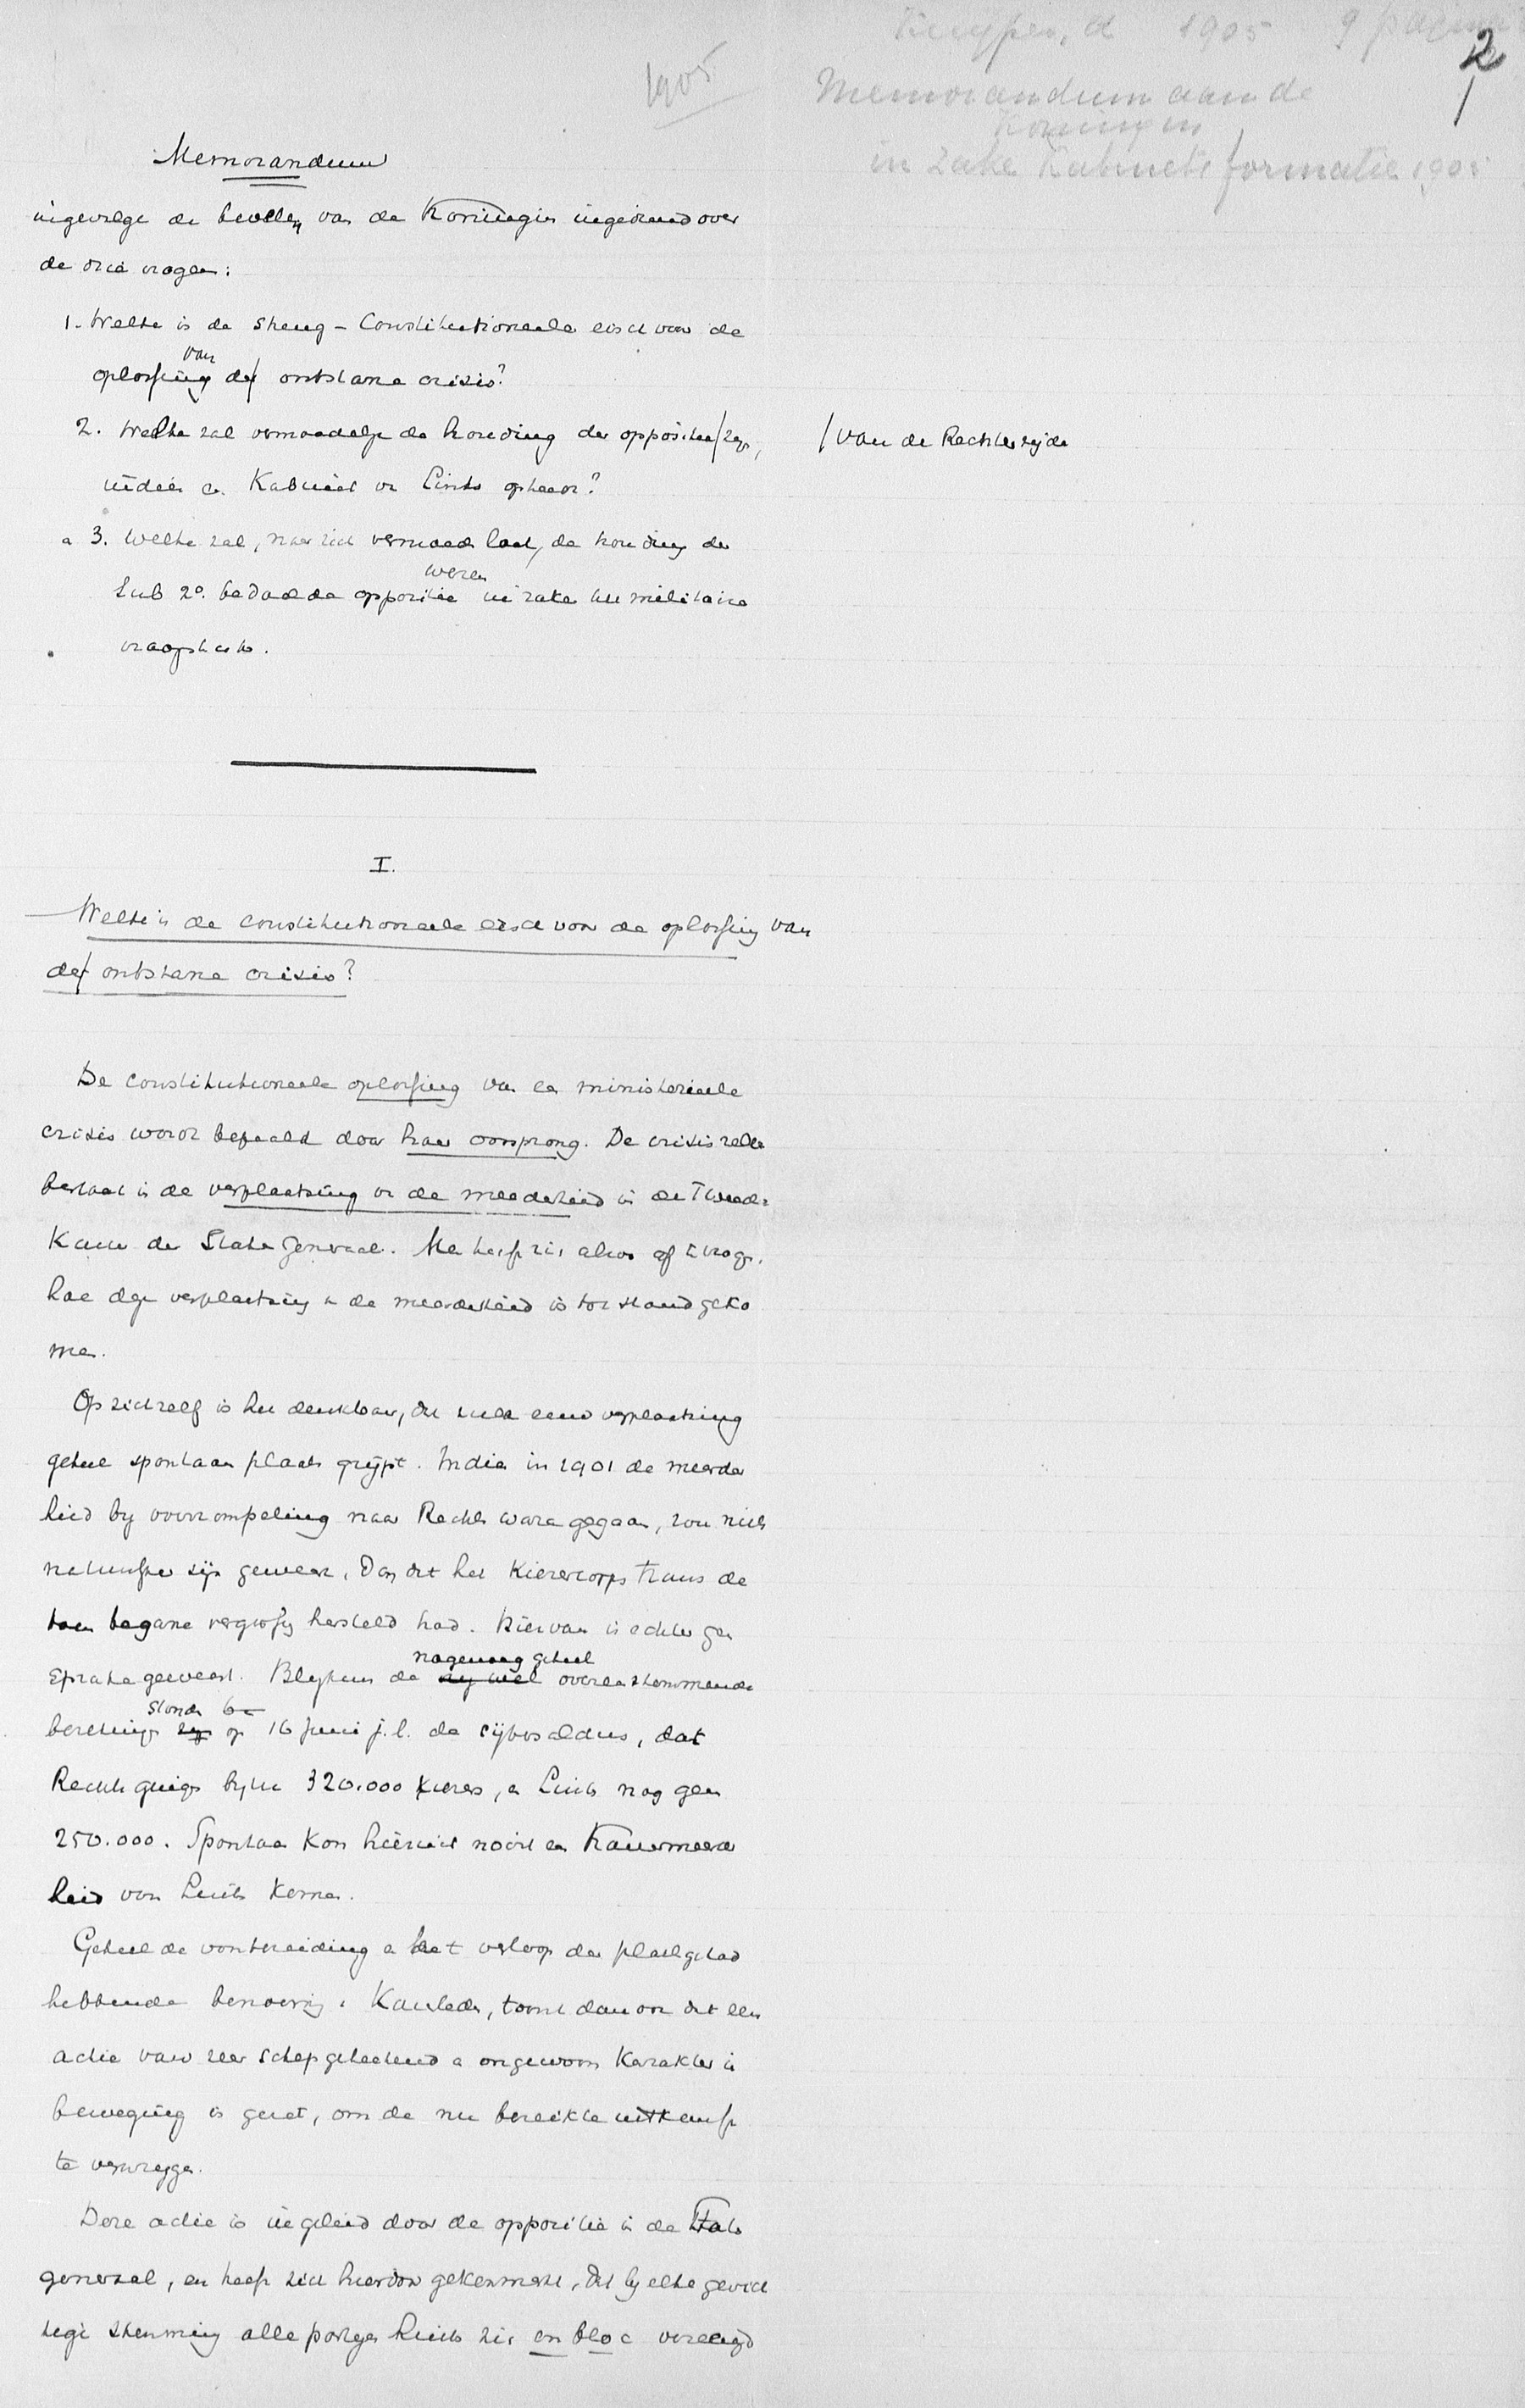 Kuyper, A 1905 9 pagina's
2
1905
Memorandum aan de
Koningin
in zake Kabinetsformatie 1905
Memorandum
ingevolge de bevelen van de Koningin ingediend over
de drie vragen:
1. Welke is de streng-Constitutioneele eisch voor de
oplossing van de ontstane crisis?
2. Welke zal vermoedelijk de houding der oppositie / zijn, / van de Rechterzijde
indien een Kabinet van Links optreedt?
a 3. Welke zal, naar zich vermoeden laat, de houding der
sub 2º. bedoelde oppositie wezen in zake het militaire
vraagstuk.
I.
Welke is de constitutioneele eisch voor de oplossing van
de ontstane crisis?
De constitutioneele oplossing van een ministerieele
crisis wordt bepaald door haar oorsprong. De crisis zelve
bestaat in de verplaatsing van de meerderheid in de Tweede
Kamer der Staten Generaal. Men heeft zich alzoo af te vragen,
hoe deze verplaatsing van de meerderheid is tot stand geko
men.
Op zichzelf is het denkbaar, dat zulk eene verplaatsing
geheel spontaan plaats grijpt. Indien in 1901 de meerder
heid by overrompeling naar Rechts ware gegaan, zou niets
natuurlijker zijn geweest, dan dat het Kiezerscorps thans de
toen begane vergissing hersteld had. Hiervan is echter geen
sprake geweest. Blijkens de nagenoeg geheel overeenstemmende
berekeningen stonden op 16 Juni j.l. de cijfers aldus, dat
Rechts gingen bijna 320.000 kiezers, en Links nog geen
250.000. Spontaan kon hieruit nooit een Kamermeerder
heid van Links komen.
Geheel de voorbereiding en het verloop der plaats gehad
hebbende benoeming van Kamerleden, toont dan ook dat een
actie van zeer scherp geteekend en ongewoon karakter in
beweging is gezet, om de nu bereikte uitkomst
te verkrijgen.
Deze actie is ingeleid door de oppositie in de Staten
generaal, en heeft zich hierdoor gekenmerkt, dat by elke gewich
tige stemming alle partijen Links zich en bloc vereenigd